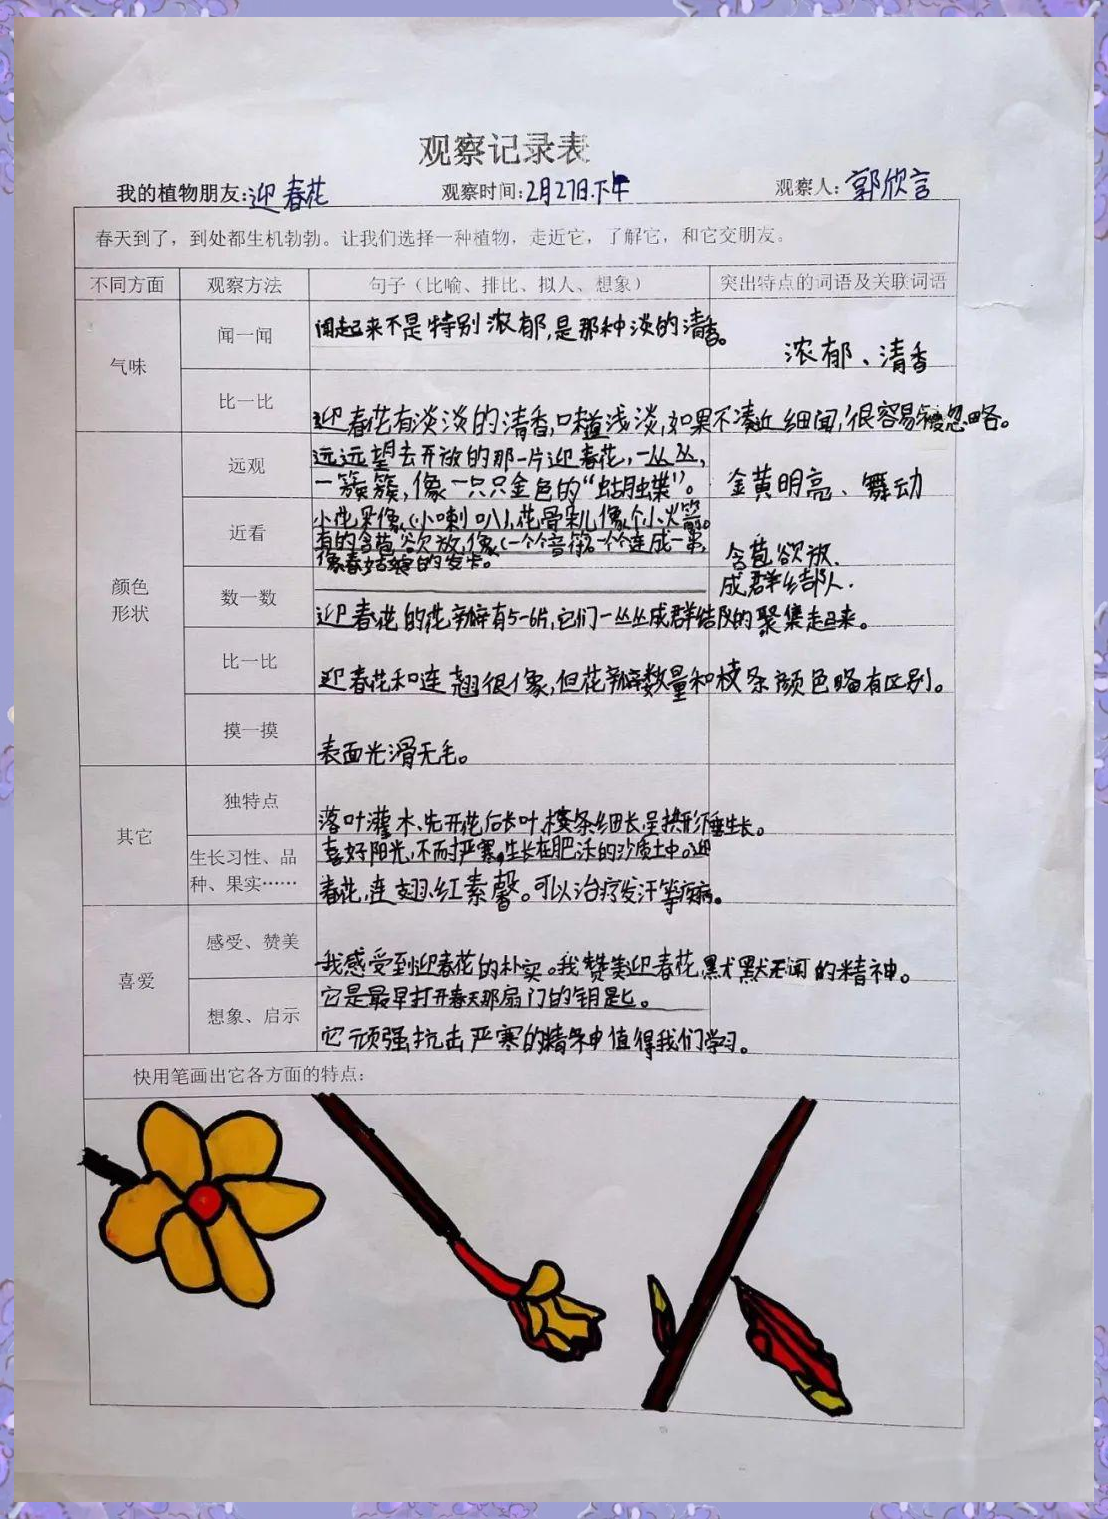 观察记录表
我的植物朋友:迎春花 观察时间:2月27日.下午 观察人:郭欣言
春天到了，到处都生机勃勃。让我们选择一种植物，走近它，了解它，和它交朋友。
不同方面 观察方法 句子（比喻、排比、拟人、想象） 突出特点的词语及关联词语
气味
闻一闻
闻起来不是特别浓郁,是那种淡的清香。
浓郁、清香
比一比
迎春花有淡淡的清香,味道浅淡,如果不凑近细闻,很容易被忽略。
颜色
形状
远观
远远望去开放的那一片迎春花,一丛丛,
一簇簇,像一只只金色的“蝴蝶”。
金黄明亮、舞动
近看
小花朵像(小喇叭),花骨朵儿像个小火箭。
有的含苞欲放,像(一个个音符。一个个连成一串,
像春姑娘的发卡。
含苞欲放.
成群结队.
数一数
迎春花的花瓣有5-6片,它们一丛丛成群结队的聚集起来。
比一比
迎春花和连翘很像,但花瓣数量和枝条颜色略有区别。
摸一摸
表面光滑无毛。
其它
独特点
落叶灌木、先开花后长叶,枝条细长,呈拱形下垂生长。
生长习性、品
种、果实……
喜好阳光,不耐严寒,生长在肥沃的沙质土中。迎
春花,连翘、红素馨。可以治疗发汗等疾病。
喜爱
感受、赞美
我感受到迎春花的朴实。我赞美迎春花默默无闻的精神。
想象、启示
它是最早打开春天那扇门的钥匙。
它顽强抗击严寒的精神值得我们学习。
快用笔画出它各方面的特点：